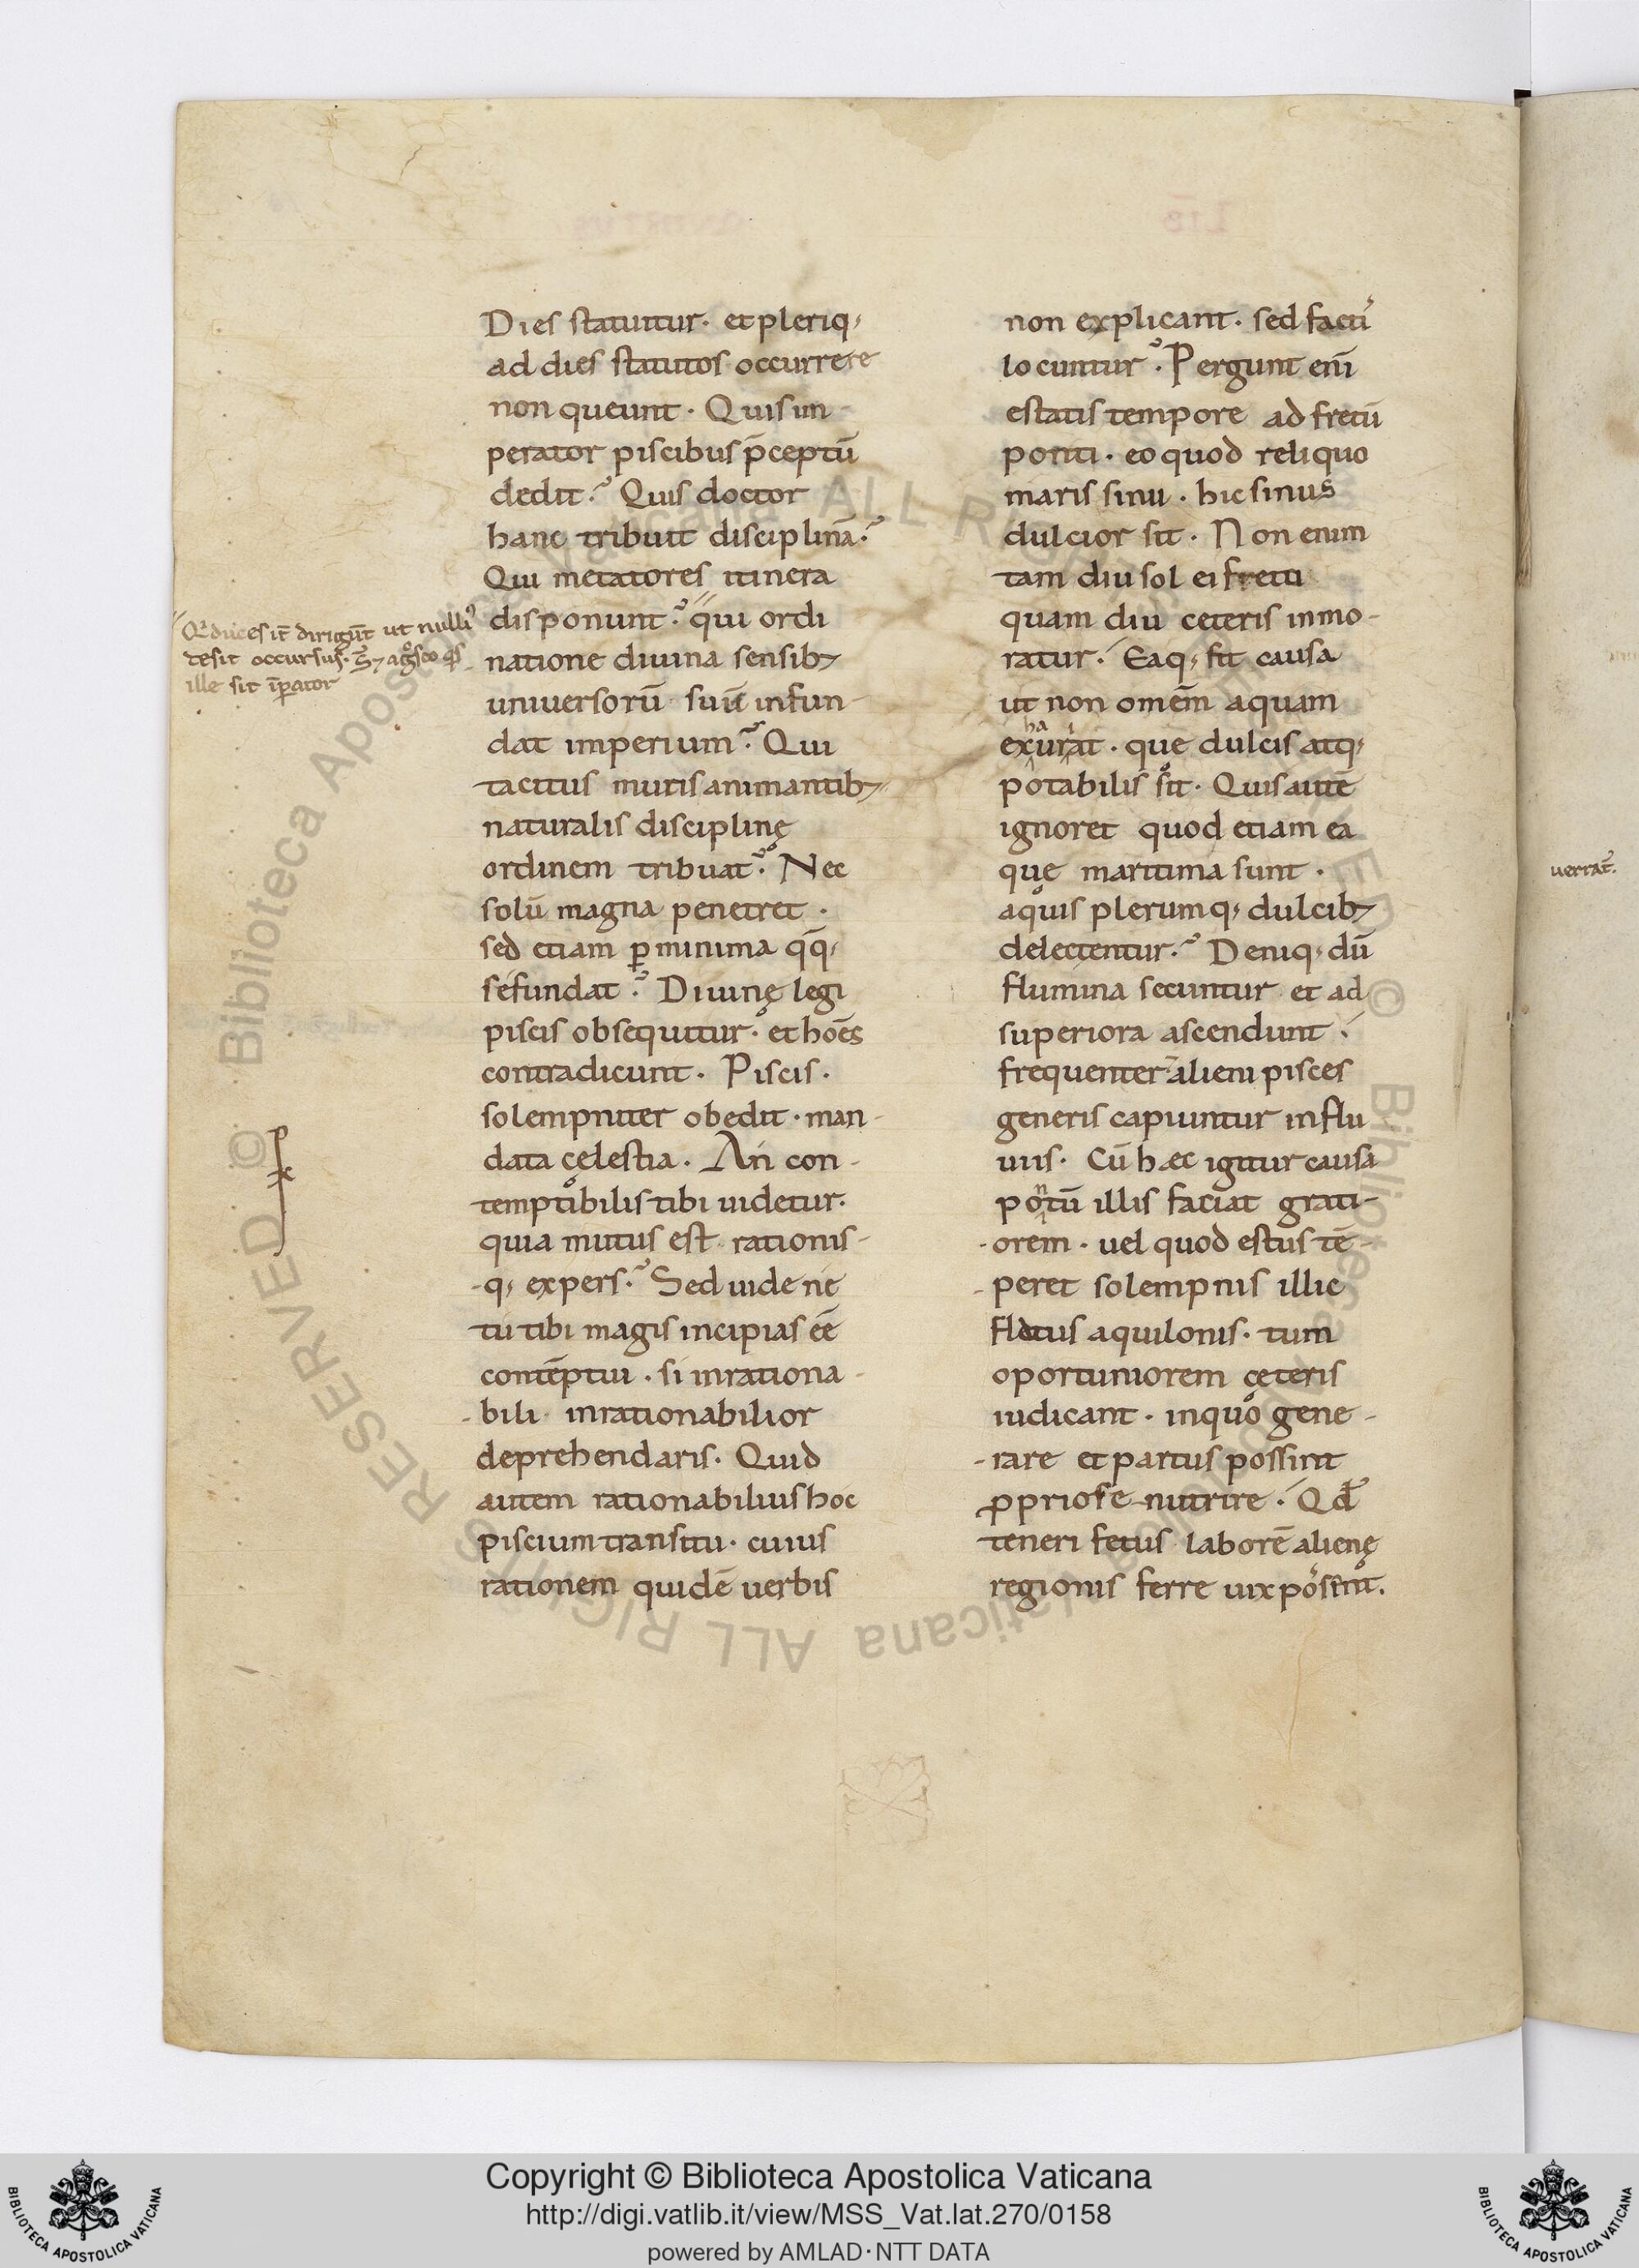 Dies statuitur· et pleriq;
ad dies statutos occurrere
non queunt· Quis im
perator piscibus p̄ceptū
dedit? Quis doctor
hanc tribuit disciplinā?
Qui metatores itinera
disponunt? qui ordi
natione diuina sensib;
uniuersorū suū infun-
dat imperium? Qui
tacitus mutis animantib;
naturalis disciplinę
ordinem tribuat? Nec
solū magna penetret ·
sed etiam ꝑ minima qq̄;
se fundat? Diuinę legi
piscis obsequitur· et hoēs
contradicunt· Piscis·
solempniter obedit· man-
data cęlestia· An con-
temptibilis tibi uidetur·
quia mutus est rationis-
-q; expers? Sed uide ne
tu tibi magis incipias eē
contēptui· si inrationa-
-bili inrationabilior
deprehendaris· Quid
autem rationabilius hoc
piscium transitu· cuius
rationem quidē uerbis
ut nulli
te sit occursus·
ille sit īꝑator
non explicant· sed facti
locuntur? Pergunt enī
estatis tempore ad fretū
ponti· eo quod reliquo
maris sinu· hic sinus
dulcior sit· Non enim
tam diu sol ei freti
quam diu ceteris inmo-
ratur· Eaq; fit causa
ut non omēm aquam
exhauriat· que dulcis atq;
potabilis sit· Quis autē
ignoret quod etiam ea
que maritima sunt·
aquis plerumq; dulcib;
delectentur? Deniq; dū
flumina secuntur et ad
superiora ascendunt·
frequenter alieni pisces
generis capiuntur in flu
uiis· Cū hæc igitur causa
pontū illis faciat grati-
-orem· uel quod estus tē-
-peret solempnis illic
flatus aquilonis· tum
oportuniorem cęteris
iudicant· in quo gene-
-rare et partus possint
ꝓprios enutrire· Qd̄
teneri fetus laborē alienę
regionis ferre uix possint·
uerrat̄.
Copyright © Biblioteca Apostolica Vaticana
http://digi.vatlib.it/view/MSS_Vat.lat.270/0158
powered by AMLAD·NTT DATA
BIBLIOTECA APOSTOLICA VATICANA
BIBLIOTECA APOSTOLICA VATICANA